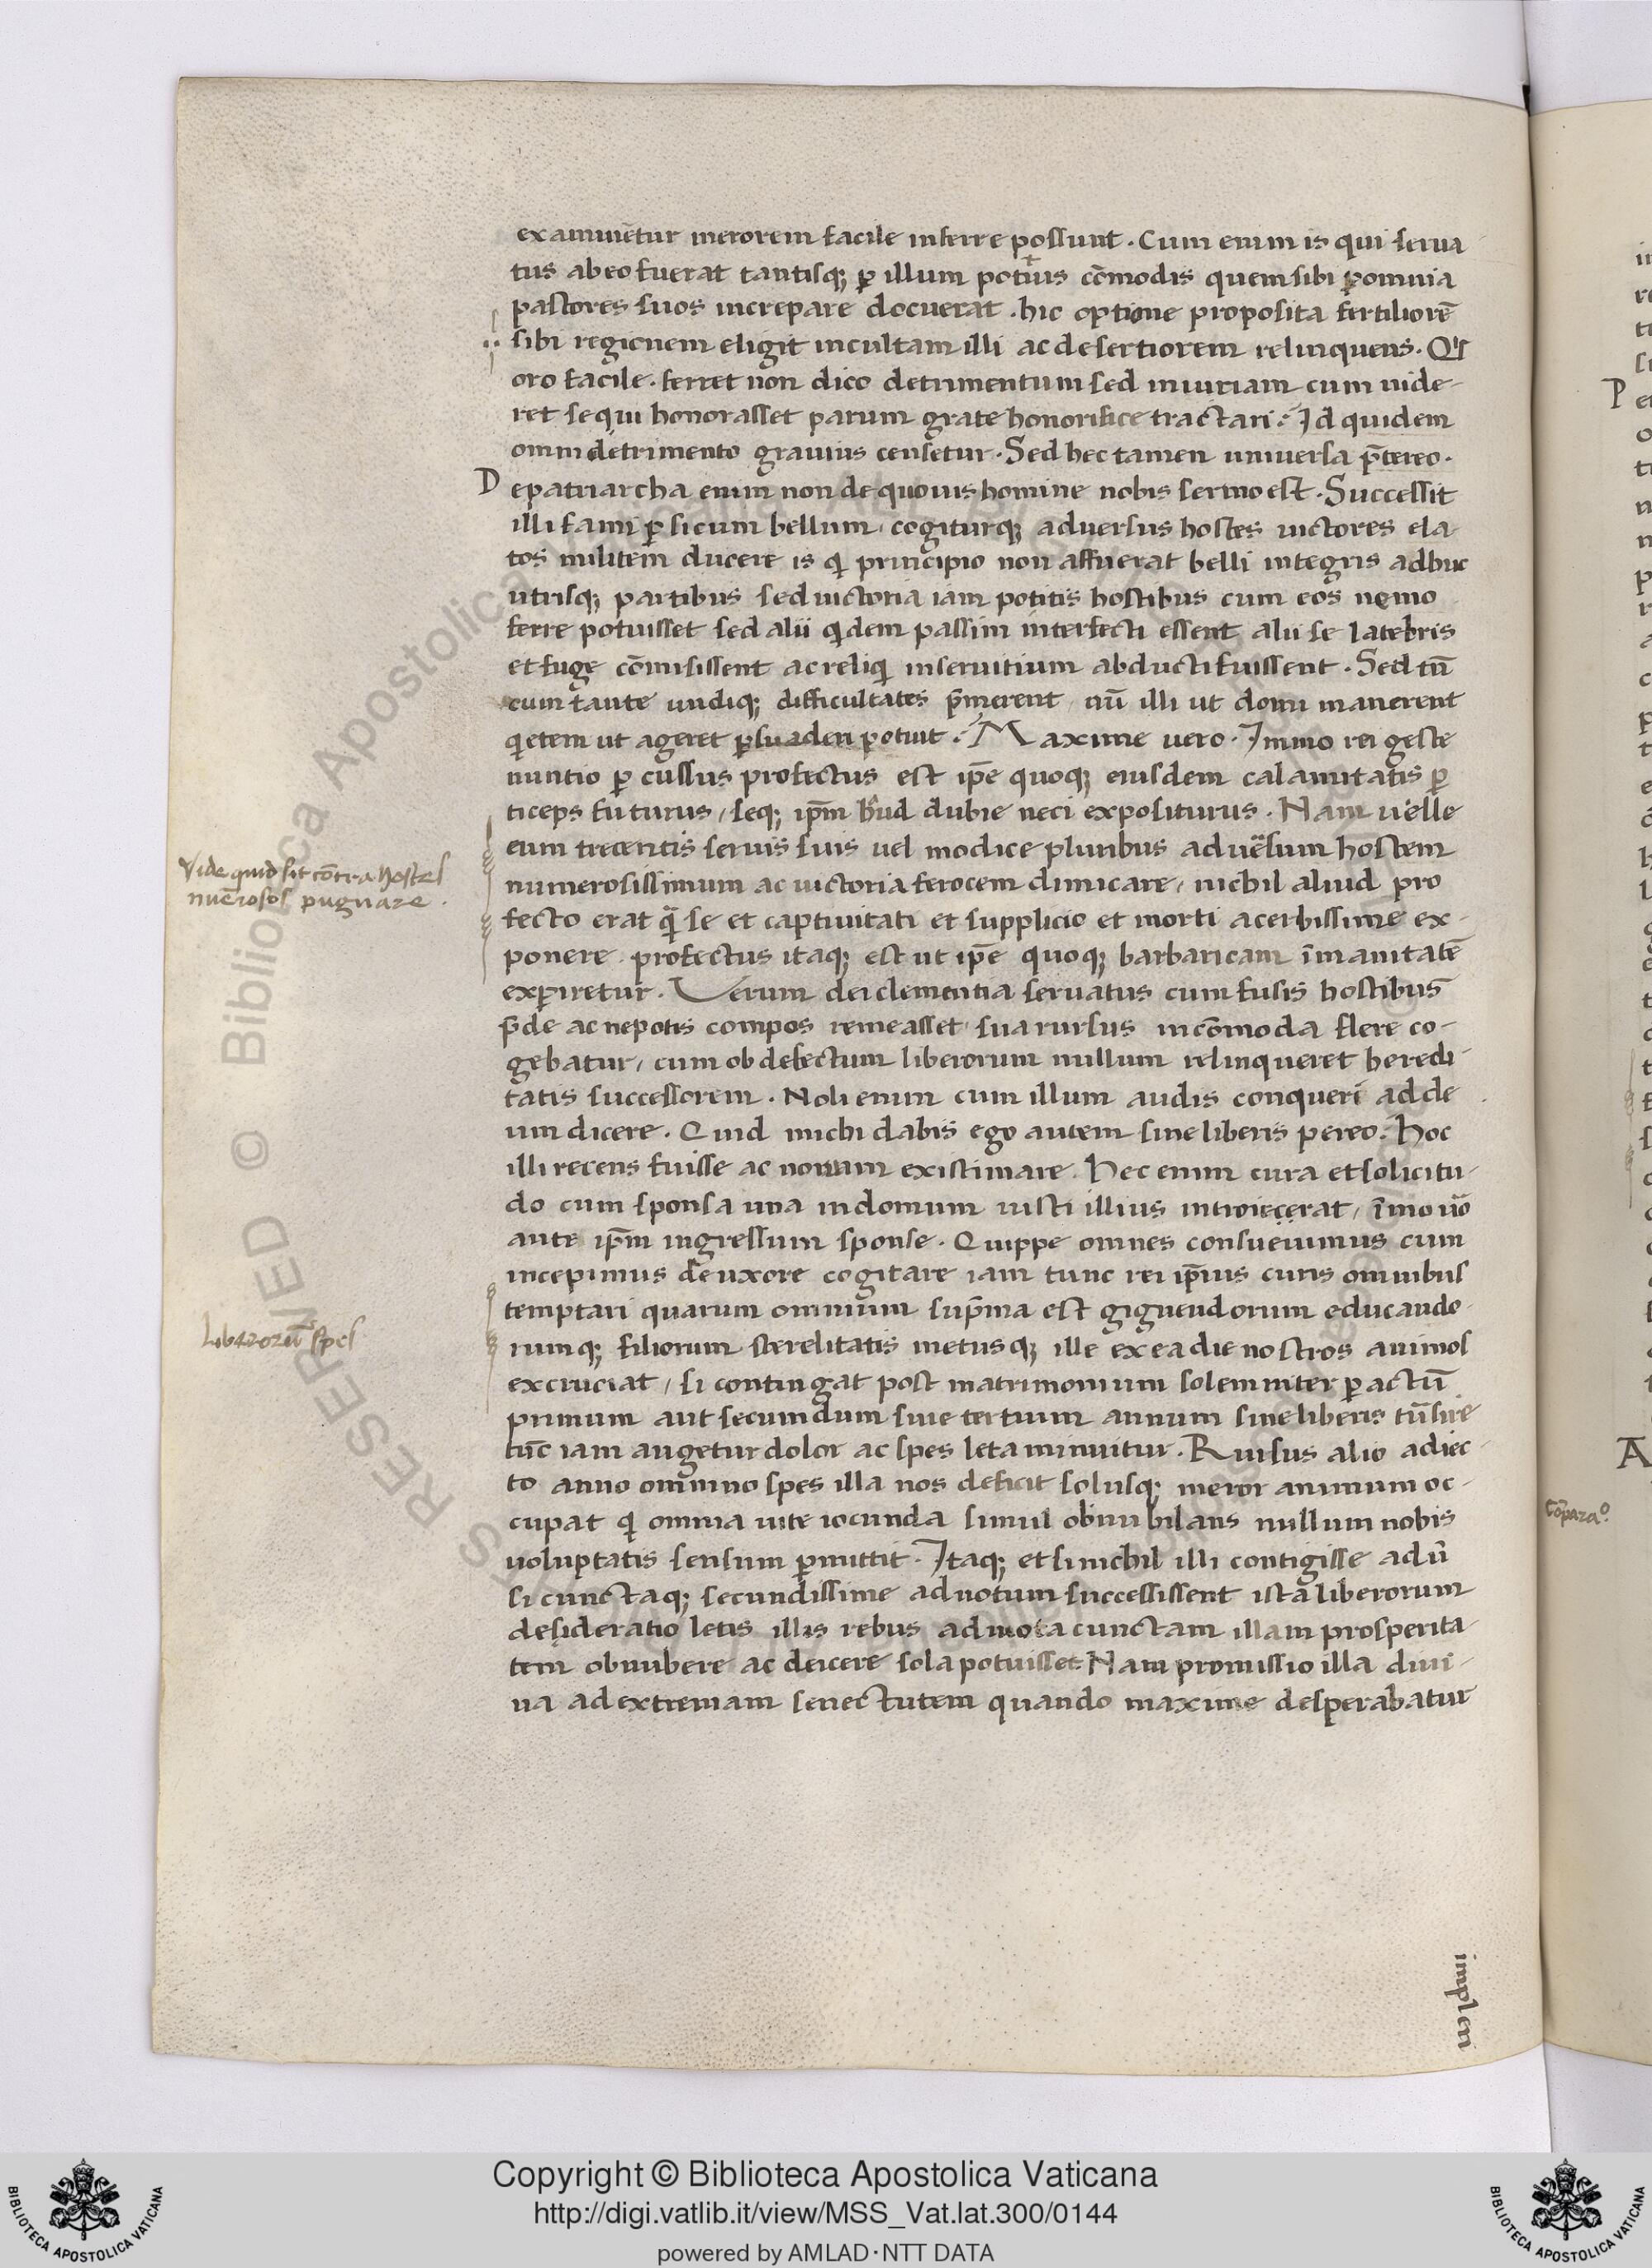 examinētur merorem facile inferre possunt. Cum enim is qui serua
tus ab eo fuerat tantisq; ꝑ illum potius cōmodis quem sibi ꝑ omnia
pastores suos increpare docuerat. hic optione proposita fertiliorē
sibi regionem eligit incultam illi ac desertiorem relinquens. Qⁱs
oro facile ferret non dico detrimentum sed iniuriam cum uide-
ret se qui honorasset parum grate honorifice tractari? Id quidem
omni detrimento grauius censetur. Sed hec tamen uniuersa p̄tereo.
De patriarcha enim non de quouis homine nobis sermo est. Successit
illi fami ꝑsicum bellum, cogiturq; aduersus hostes uictores ela-
tos militem ducere is qi principio non affuerat belli integris adhuc
utrisq; partibus sed uictoria iam potitis hostibus cum eos nemo
ferre potuisset sed alii qidem passim interfecti essent alii se latebris
et fuge cōmisissent ac reliqi in seruitium abducti fuissent. Sed tū
cum tante undiq; difficultates p̄merent nū illi ut domi manerent
qietem ut ageret ꝑsuaderi potuit? Maxime uero. Immo rei geste
nuntio ꝑcussus profectus est ip̄e quoq; eiusdem calamitatis ꝑ
ticeps futurus, seq; ip̄m haud dubie neci expositurus. Nam uelle
eum trecentis seruis suis uel modice pluribus aduersum hostem
numerosissimum ac uictoria ferocem dimicare, nichil aliud pro
fecto erat qā se et captiuitati et supplicio et morti acerbissime ex-
ponere. profectus itaq; est ut ip̄e quoq; barbaricam īmanitatē
exꝑiretur. Verum dei clementia seruatus cum fusis hostibus
p̄de ac nepotis compos remeasset sua rursus incōmoda flere co-
gebatur, cum ob defectum liberorum nullum relinqueret heredi-
tatis successorem. Noli enim cum illum audis conqueri ad de
um dicere. Quid michi dabis ego autem sine liberis pereo? Hoc
illi recens fuisse ac nouam existimare. Hec enim cura et solicitu-
do cum sponsa una in domum iusti illius introiecerat, īmo ūo
ante ip̄m ingressum sponse. Quippe omnes consueuimus cum
incepimus de uxore cogitare iam tunc rei ip̄ius curis omnibus
temptari quarum omnium sup̄ma est gignendorum educando-
rumq; filiorum sterelitatis metusq; ille ex ea die nostros animos
excruciat, si contingat post matrimonium solemniter ꝑactū
primum aut secundum siue tertium annum sine liberis tūsire
tūc iam augetur dolor ac spes leta minuitur. Rursus alio adiec-
to anno omnino spes illa nos deficit solusq; meror animum oc-
cupat qi omnia uite iocunda simul obnubilans nullum nobis
uoluptatis sensum ꝑmittit. Itaq; etsi nichil illi contigisse adū
si cunctaq; secundissime ad uotum successissent ista liberorum
desideratio letis illis rebus admota cunctam illam prosperita-
tem obnubere ac deicere sola potuisset. Nam promissio illa diui-
na ad extremam senectutem quando maxime desperabatur
implen
Vide quid sit cōtra hostes
nūerosos pugnare.
Liberorū spes
cōparaº.
P
A
© Biblioteca Apostolica
RESERVED
BIBLIOTECA APOSTOLICA VATICANA
Copyright © Biblioteca Apostolica Vaticana
http://digi.vatlib.it/view/MSS_Vat.lat.300/0144
powered by AMLAD·NTT DATA
BIBLIOTECA APOSTOLICA VATICANA